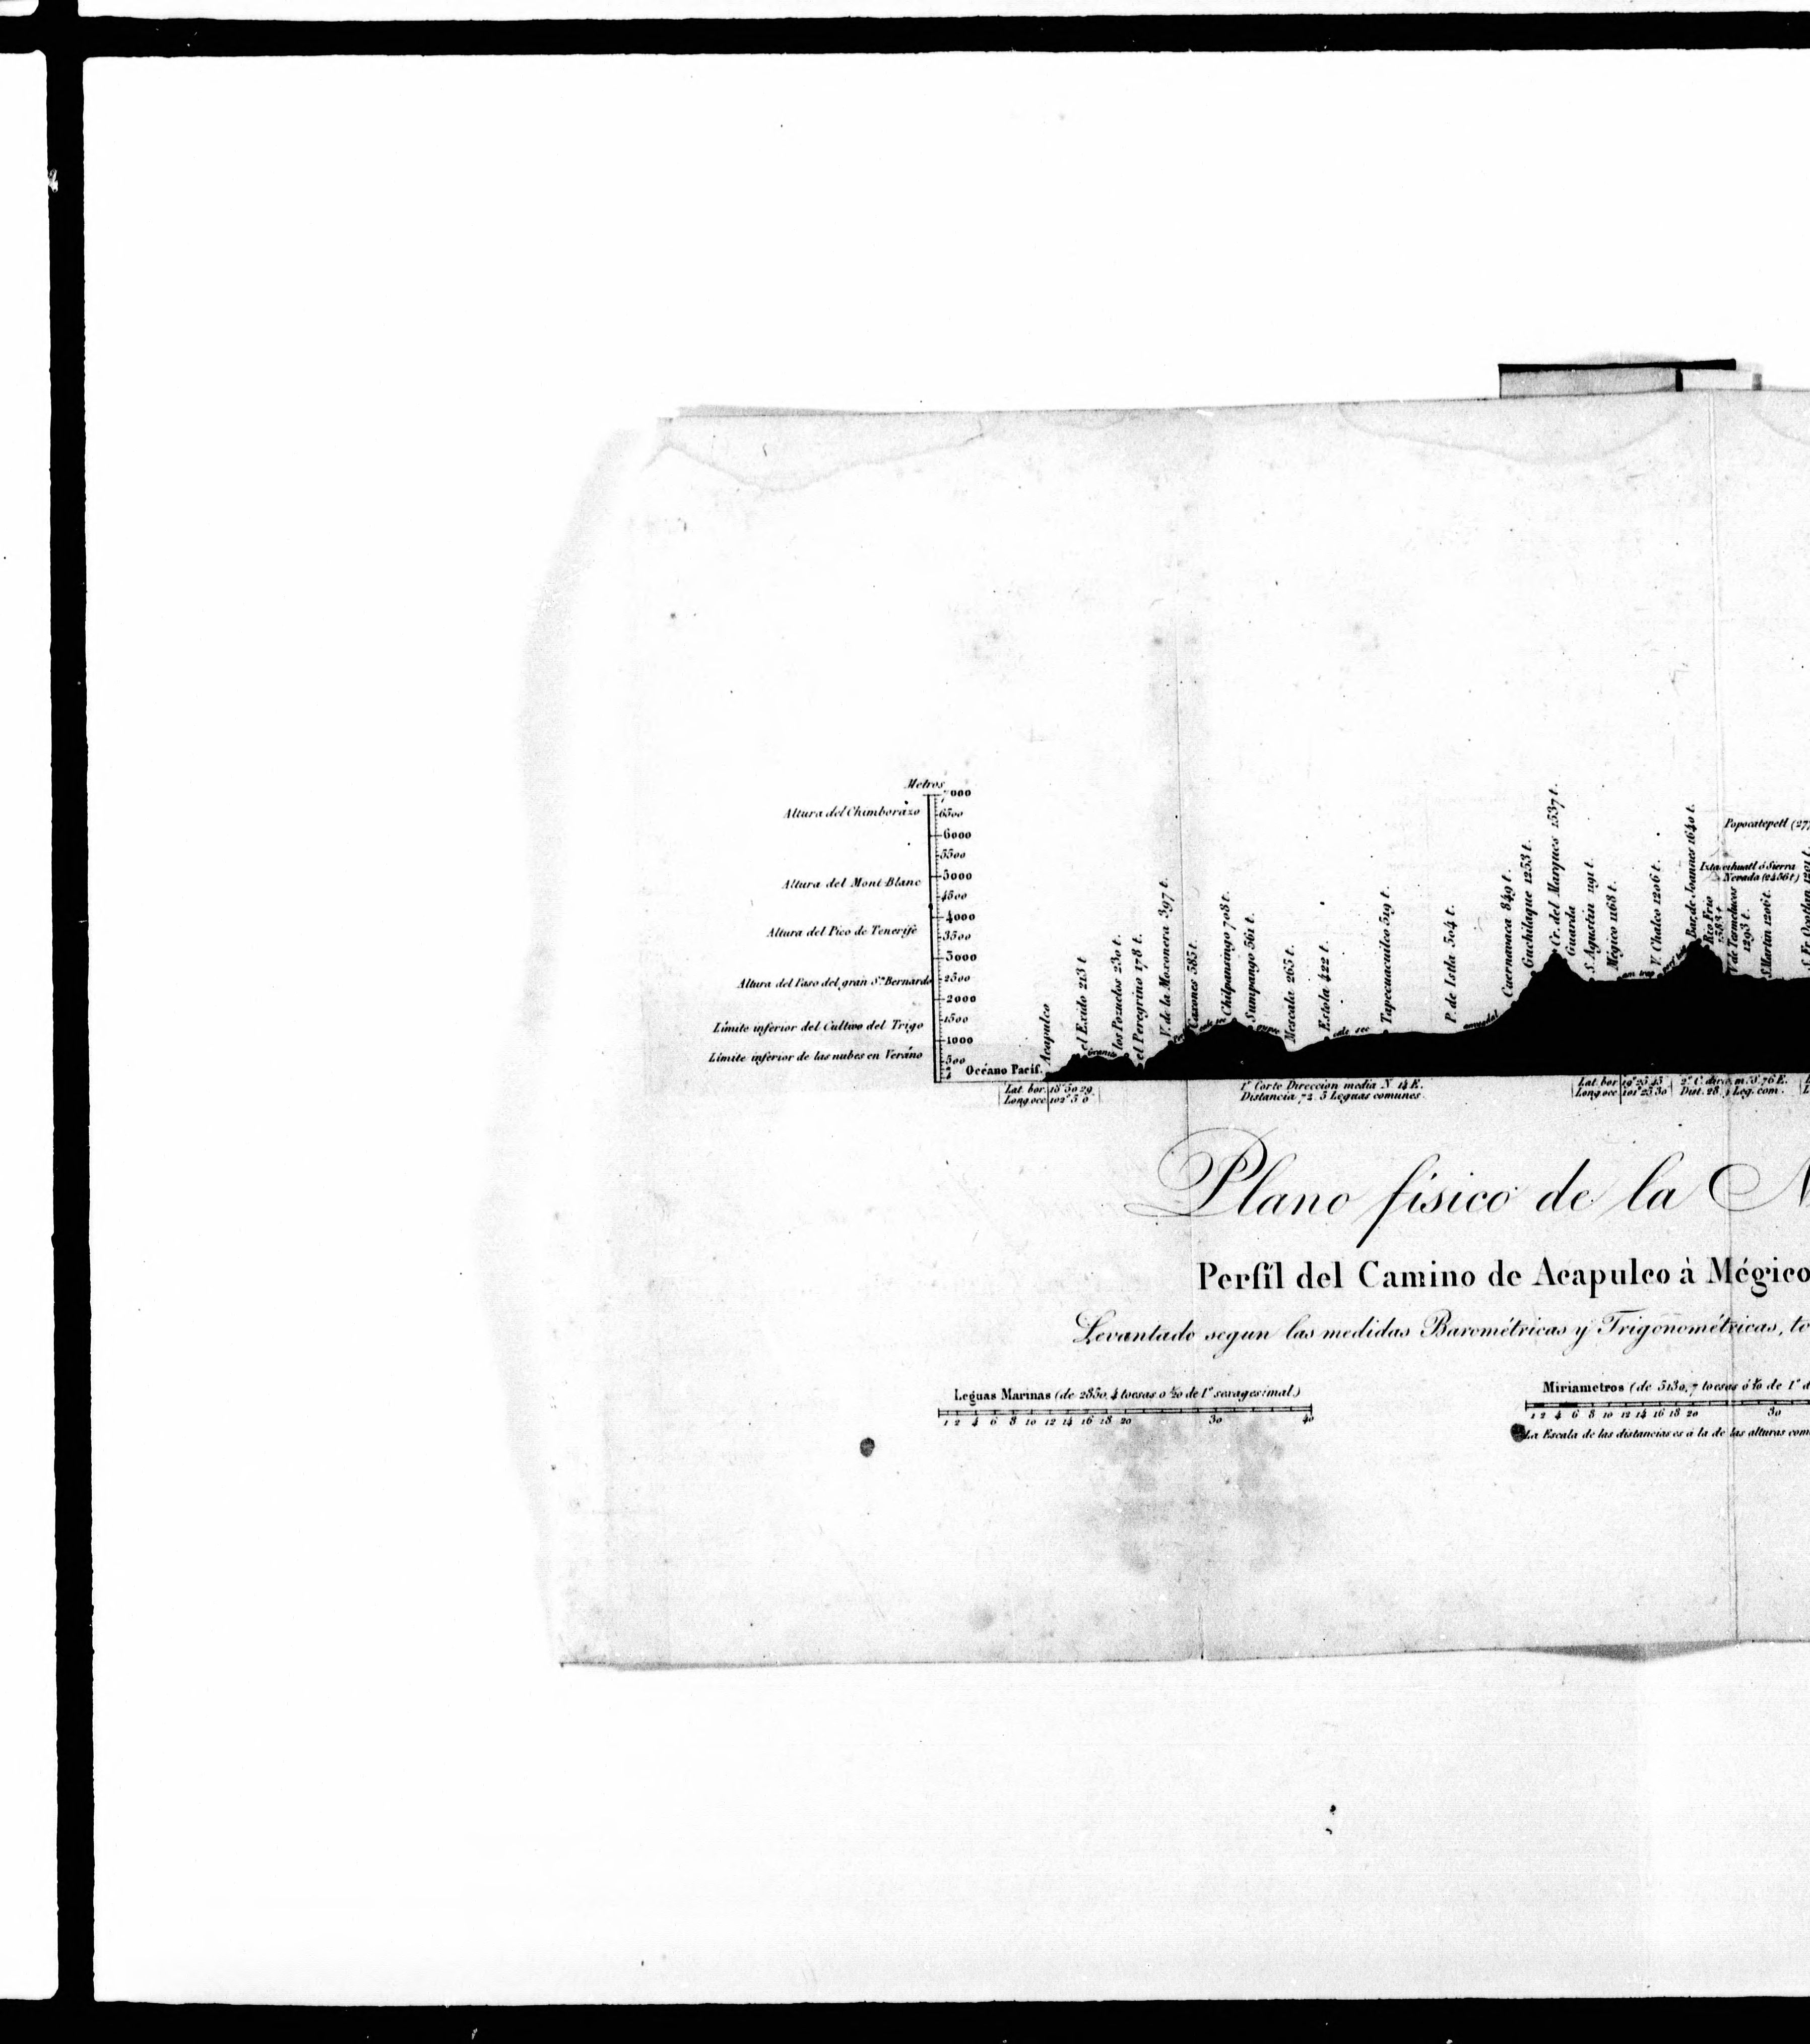 Metros
7000
Altura del Chimborazo
6500
6000
5500
5000
Altura del Mont-Blanc
4500
4000
Altura del Pico de Tenerife
3500
3000
Altura del Paso del gran Sn. Bernardo
2500
2000
Límite inferior del Cultivo del Trigo
1500
1000
Límite inferior de las nubes en Veráno
500
Océano Pacíf.
Acapulco
el Exido 213 t
los Pozuelos 230 t.
el Peregrino 178 t.
V. de la Moxonera 397 t.
Caxones 585 t.
Chilpansingo 708 t.
Sumpango 561 t.
Mescala 265 t.
Estola 422 t.
Tapecuacuilco 519 t.
P. de Istla 504 t.
Cuernavaca 849 t.
Guchilaque 1253 t.
Cr. del Marques 1537 t.
Guarda
S. Agustin 1191 t.
Mégico 1168 t.
V. Chalco 1206 t.
Bar. de Joannes 1640 t.
Rio Frio
V. de Tesmelucos
1293 t.
S. Martin 1206 t.
Popocatepetl (27
Ixtaccihuatl ó Sierra
Nevada (2456 t)
Granit
calc sec
amigdal
am trap
Lat. bor. 16° 50 29
Long occ 102° 5 0
1r Corte Direccion media N 14 E.
Distancia 72. 5 Leguas comunes
Lat. bor 19° 25 45
Long occ 101° 25 30
2° C. direc. m. S 76 E.
Dist. 28. 1 Leg. com.
Plano físico de la N
Perfil del Camino de Acapulco à Mégico
Levantado segun las medidas Barométricas y Trigonométricas, to
Leguas Marinas (de 2850, 4 toesas o 1/20 de 1° sexagesimal)
1 2 4 6 8 10 12 14 16 18 20 30 40
Miriametros (de 5130, 7 toesas ó 1/10 de 1° d
1 2 4 6 8 10 12 14 16 18 20 30
La Escala de las distancias es á la de las alturas com